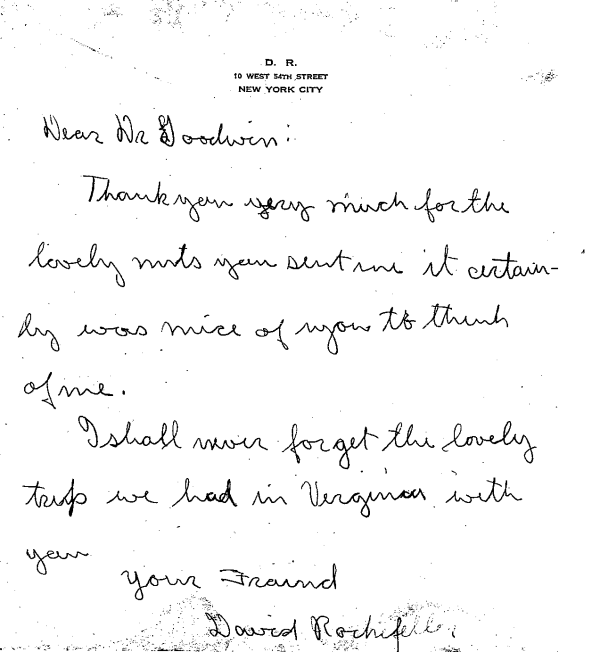 D. R.
10 WEST 54TH STREET
NEW YORK CITY
Dear Dr Goodwin:
Thank you very much for the
lovely nuts you sent me it certain-
ly was nice of you to think
of me.
I shall never forget the lovely
trip we had in Verginia with
you
your Fraind
David Rockifeller